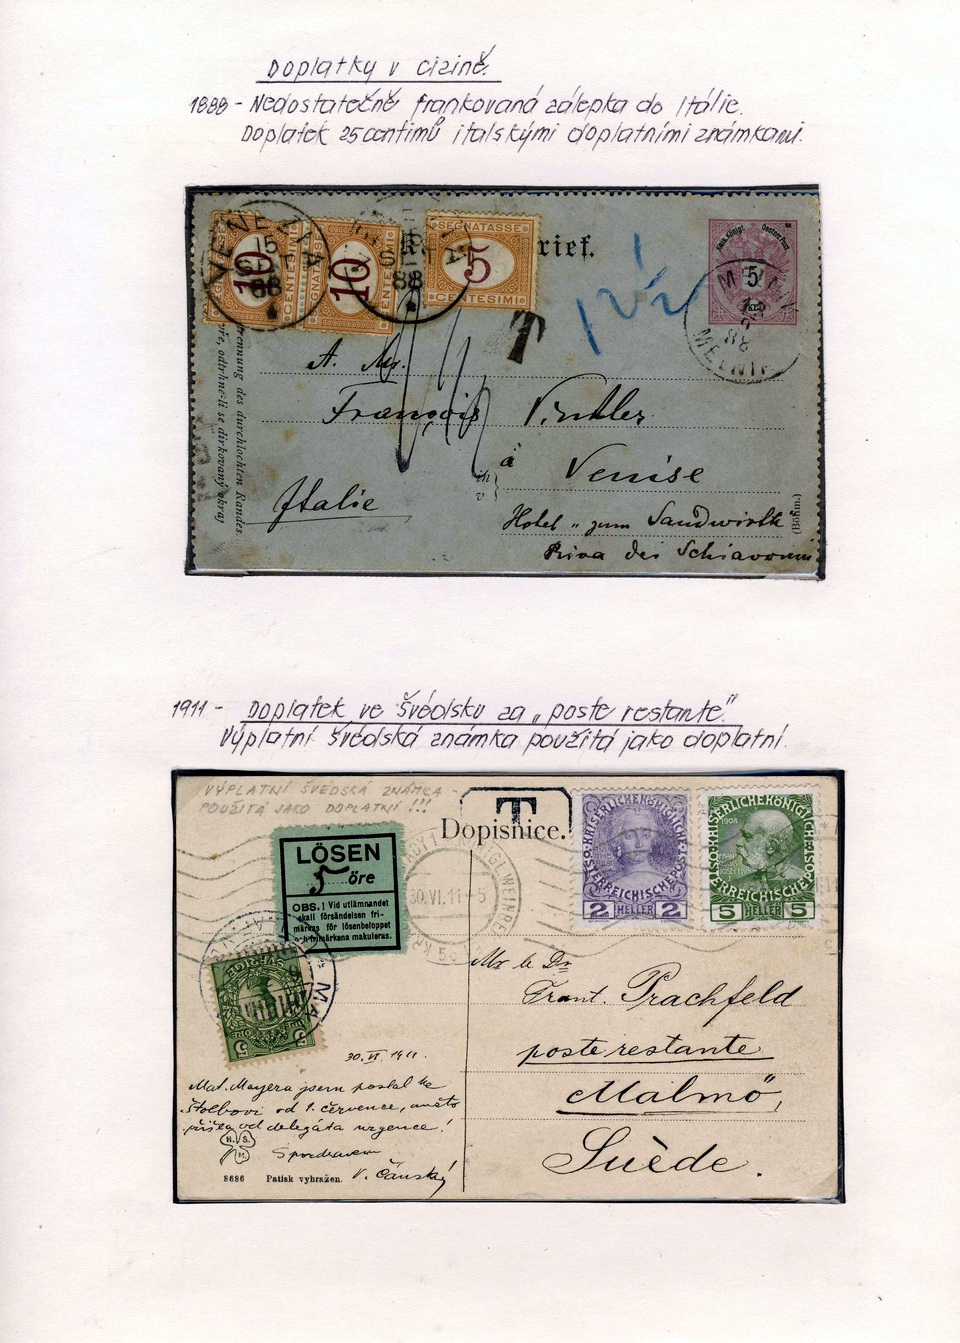 Doplatky v cizině.
1888 - Nedostatečně frankovaná zálepka do Itálie.
Doplatek 25 centimů italskými doplatními známkami.
VENEZIA
15
88
10
CENTESIMI
SEGNATASSE
10
CENTESIMI
88
SEGNATASSE
5
CENTESIMI
rief.
T
12 1/2
Kais. Königl. Oesterr. Post.
5
MELNIK
88
A. Mr.
François
à
Venise
Italie
Hotel „zum Sandwirth“
Riva dei Schiavoni
(Böhm.)
trennung des durchlochten Randes
odtrhne-li se dirkovaný okraj
1911 - Doplatek ve Švédsku za „poste restante“
Výplatní švédská známka použitá jako doplatní.
VÝPLATNÍ ŠVÉDSKÁ ZNÁMKA
POUŽITÁ JAKO DOPLATNÍ !!!
T
Dopisnice.
LÖSEN
5 öre
OBS.! Vid utlämnandet
skall försändelsen fri-
märkas för lösenbeloppet
och frimärkena makuleras.
30.VI.11-5
KAISERLICHE KÖNIGLICHE
ÖSTERREICHISCHE POST
2 HELLER 2
KAISERLICHE KÖNIGLICHE
1908
ÖSTERREICHISCHE POST
5 HELLER 5
SVERIGE
5
5
Mr le Dr
Frant. Prachfeld
poste restante
Malmö,
Suède.
30. VI. 1911.
Mat. Mayera jsem poslal ke
Štolbovi od 1. července,
od delegáta urgence!
H. S.
M.
S pozdravem
V. Čánský
8686 Patisk vyhražen.